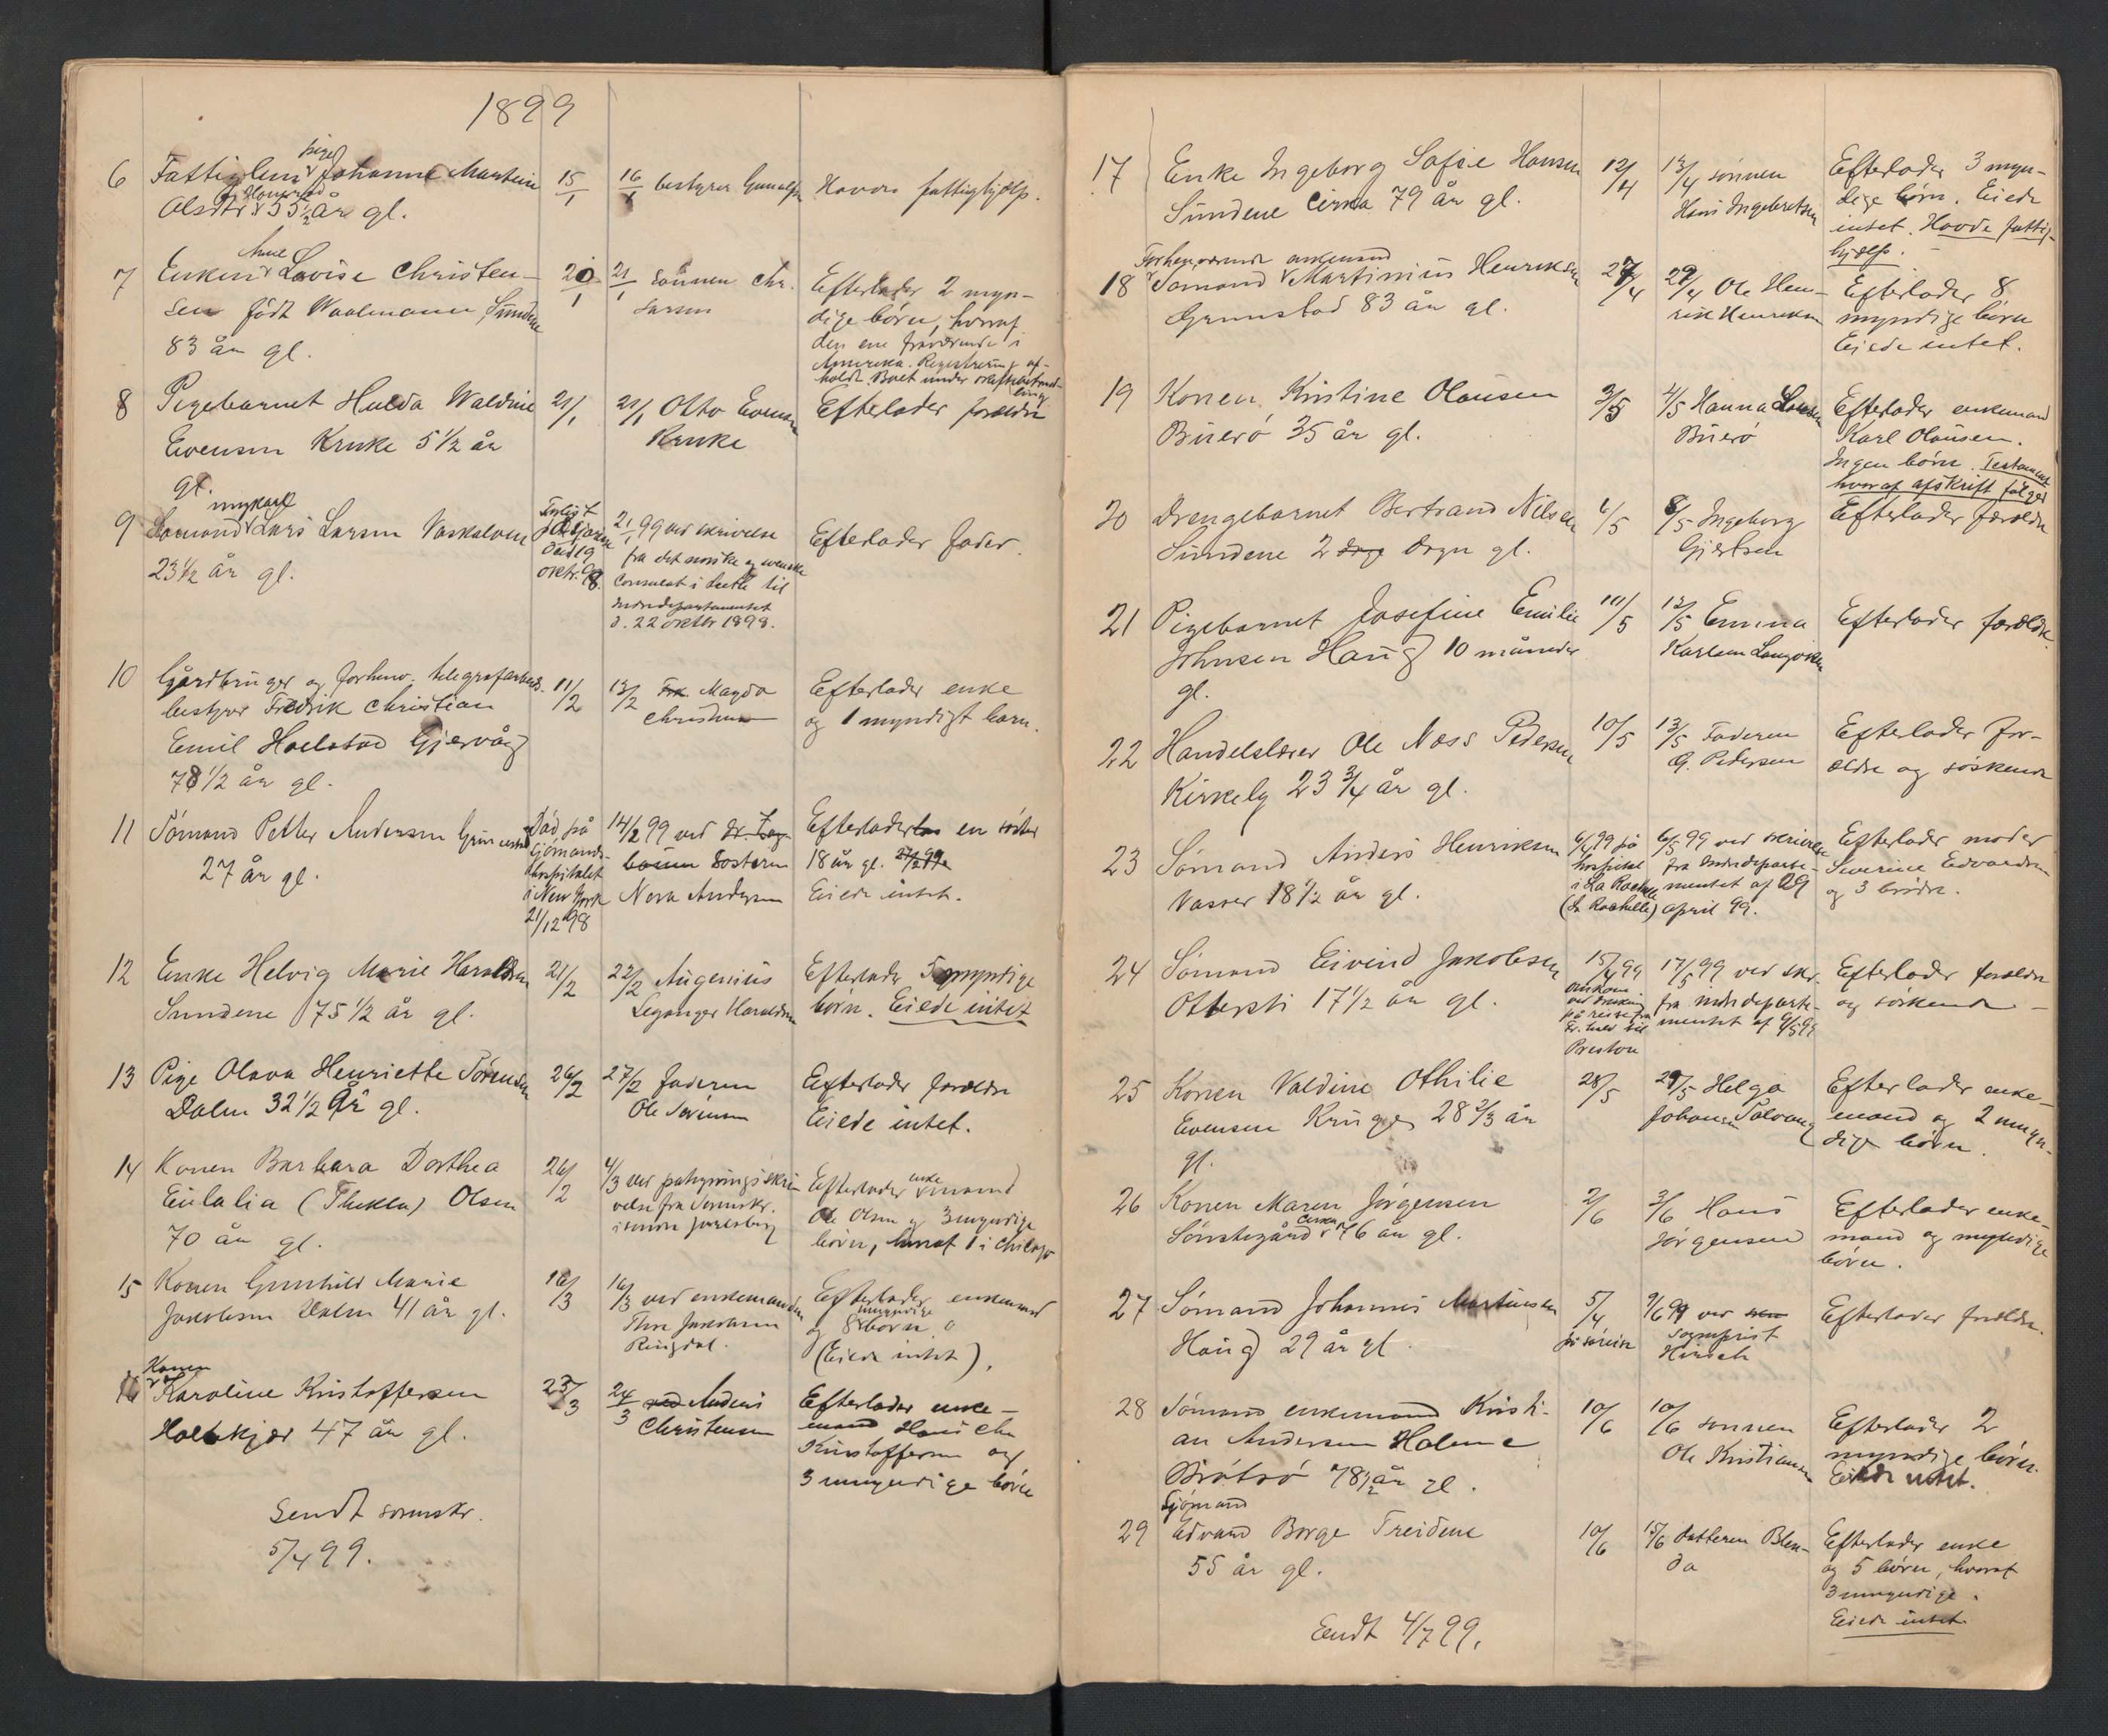 1899
6 Fattiglem pige Johanne Martine
Olsdtr 55 1/2 år gl.
15/1
16/1 bestyrer
Havde fattighjælp.
7 Enken Anne Lovise Christen-
sen født Waalmann, Sundene
83 år gl.
20/1
21/1 sønnen Chr.
Larsen
Efterlader 2 myn-
dige børn, hvoraf
den ene fraværende i
Amerika. Registrering af-
holdt. Boet under skiftebehand-
ling
8 Pigebarnet Hulda Waldine
Evensen Kruke 5 1/2 år
gl.
21/1
21/1 Otto Evensen
Kruke
Efterlader forældre
9 Sømand ungkarl Lars Larsen Vaskalven
23 1/2 år gl.
død 19
oktr. 98.
21/1 99 ved skrivelse
fra det norske og svenske
Consulat i Leith til
Indredepartementet
d. 22 oktbr 1898.
Efterlader fader.
10 Gårdbruger og forhenv. telegrafarbeids-
bestyrer Fredrik Christian
Emil Holstad Gjervåg
78 1/2 år gl.
11/2
13/2 Frk. Magda
Christensen
Efterlader enke
og 1 myndigt barn.
11 Sømand Petter Andersen Grimestad
27 år gl.
Død på
Sjømands-
hospitalet
i New York
21/12 98
14/2 99 ved
søsteren
Nora Andersen
Efterlader en søster
18 år gl.
Eiede intet.
12 Enke Helvig Marie Haraldsen
Sundene 75 1/2 år gl.
21/2
22/2 Augenius
Leganger Haraldsen
Efterlader 5 myndige
børn. Eiede intet
13 Pige Olava Henriette Sørensen
Dalen 32 1/2 år gl.
26/2
27/2 faderen
Ole Sørensen
Efterlader forældre
Eiede intet.
14 Konen Barbara Dorthea
Eulalia (Thekla) Olsen
70 år gl.
26/2
4/3 ved påtegningsskri-
velse fra Sorenskr.
i nordre Jarlsberg
Efterlader enkemand
Ole Olsen og 3 myndige
børn, hvoraf 1 i Chicago
15 Konen Gunhild Marie
Jakobsen Dalen 41 år gl.
16/3
16/3 ved enkemanden
Thor Jakobsen
Ringdal.
Efterlader enkemand
og 8 umyndige børn.
(Eiede intet).
16 Konen Karoline Kristoffersen
Holtekjær 47 år gl.
23/3
24/3 ved Anders
Christensen
Efterlader enke-
mand Hans Chr.
Kristoffersen og
3 umyndige børn
Sendt sorenskr.
5/4 99.
17 Enke Ingeborg Sofie Hansen
Sundene cirka 79 år gl.
12/4
13/4 sønnen
Hans Ingebretsen
Efterlader 3 myn-
dige børn. Eiede
intet. Havde fattig-
hjælp.
18 Forhenværende Sømand enkemand Martinius Henriksen
Grimstad 83 år gl.
27/4
29/4 Ole Hen-
rik Henriksen
Efterlader 8
myndige børn
Eiede intet.
19 Konen Kristine Olausen
Buerø 35 år gl.
3/5
4/5 Hanna
Buerø
Efterlader enkemand
Karl Olausen.
Ingen børn. Testament
hvoraf afskrift følger
20 Drengebarnet Bertrand Nilsen
Sundene 2 døgn gl.
6/5
8/5 Ingeborg
Gjertsen
Efterlader forældre
21 Pigebarnet Josefine Emilie
Johnsen Haug 10 måneder
gl.
11/5
12/5 Emma
Karlsen
Efterlader forældre.
22 Handelslærer Ole Næss Pedersen
Kirkely 23 3/4 år gl.
10/5
13/5 Faderen
G. Pedersen
Efterlader for-
ældre og søskende
23 Sømand Anders Henriksen
Vasser 18 1/2 år gl.
99 på
hospital
i La Rochelle
(La Rochelle)
6/5 99 ved skrivelse
fra Indredeparte-
mentet af 29
april 99.
Efterlader moder
Severine Edvardsen
og 3 brødre.
24 Sømand Eivind Jakobsen
Ottersti 17 1/2 år gl.
15/4 99
omkom
ved drukning
på reise fra
Fr.hald til
Preston
17/5 99 ved skr.
fra Indredeparte-
mentet af 9/5 99
Efterlader forældre
og søskende -
25 Konen Valdine Othilie
Evensen Kruge 28 2/3 år
gl.
28/5
29/5 Helga
Johansen Solvang
Efterlader enke-
mand og 2 umyn-
dige børn.
26 Konen Maren Jørgensen
Sønstegård cirka 76 år gl.
2/6
3/6 Hans
Jørgensen
Efterlader enke-
mand og myndige
børn.
27 Sømand Johannes Martinsen
Haug 29 år gl.
5/4
på søreise
9/6 99 ved
sogneprest
Hirsch
Efterlader forældre.
28 Sømand enkemand Kristi-
an Andersen Holmene
Brøtsø 78 1/2 år gl.
10/6
10/6 sønnen
Ole Kristiansen
Efterlader 2
myndige børn.
Eiede intet.
29 Sjømand Edvard Borge Treidene
55 år gl.
10/6
15/6 datteren Blen-
da
Efterlader enke
og 5 børn, hvoraf
3 umyndige.
Eiede intet.
Sendt 4/7 99.